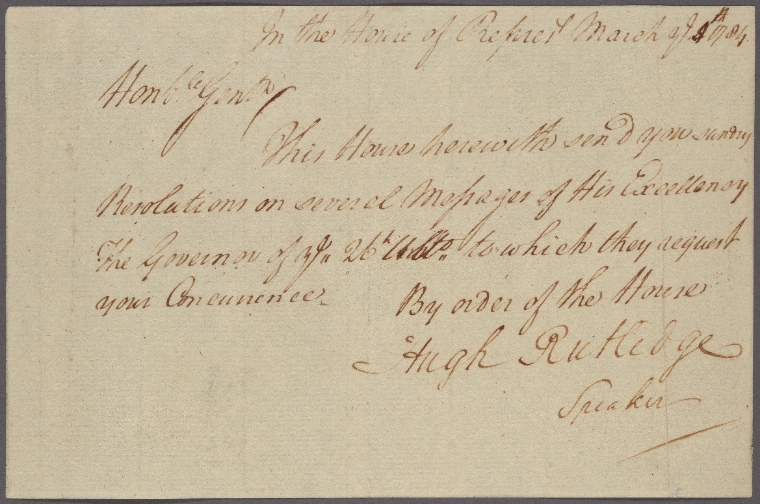 In the House of Represt. March ye. 4th 1784
Honble. Gentn.
This House herewith send you sundry
Resolutions on several Messages of His Excellency
The Governor of ye. 26th Ulto. to which they request
your Concurrence
By order of the House
Hugh Rutledge
Speaker